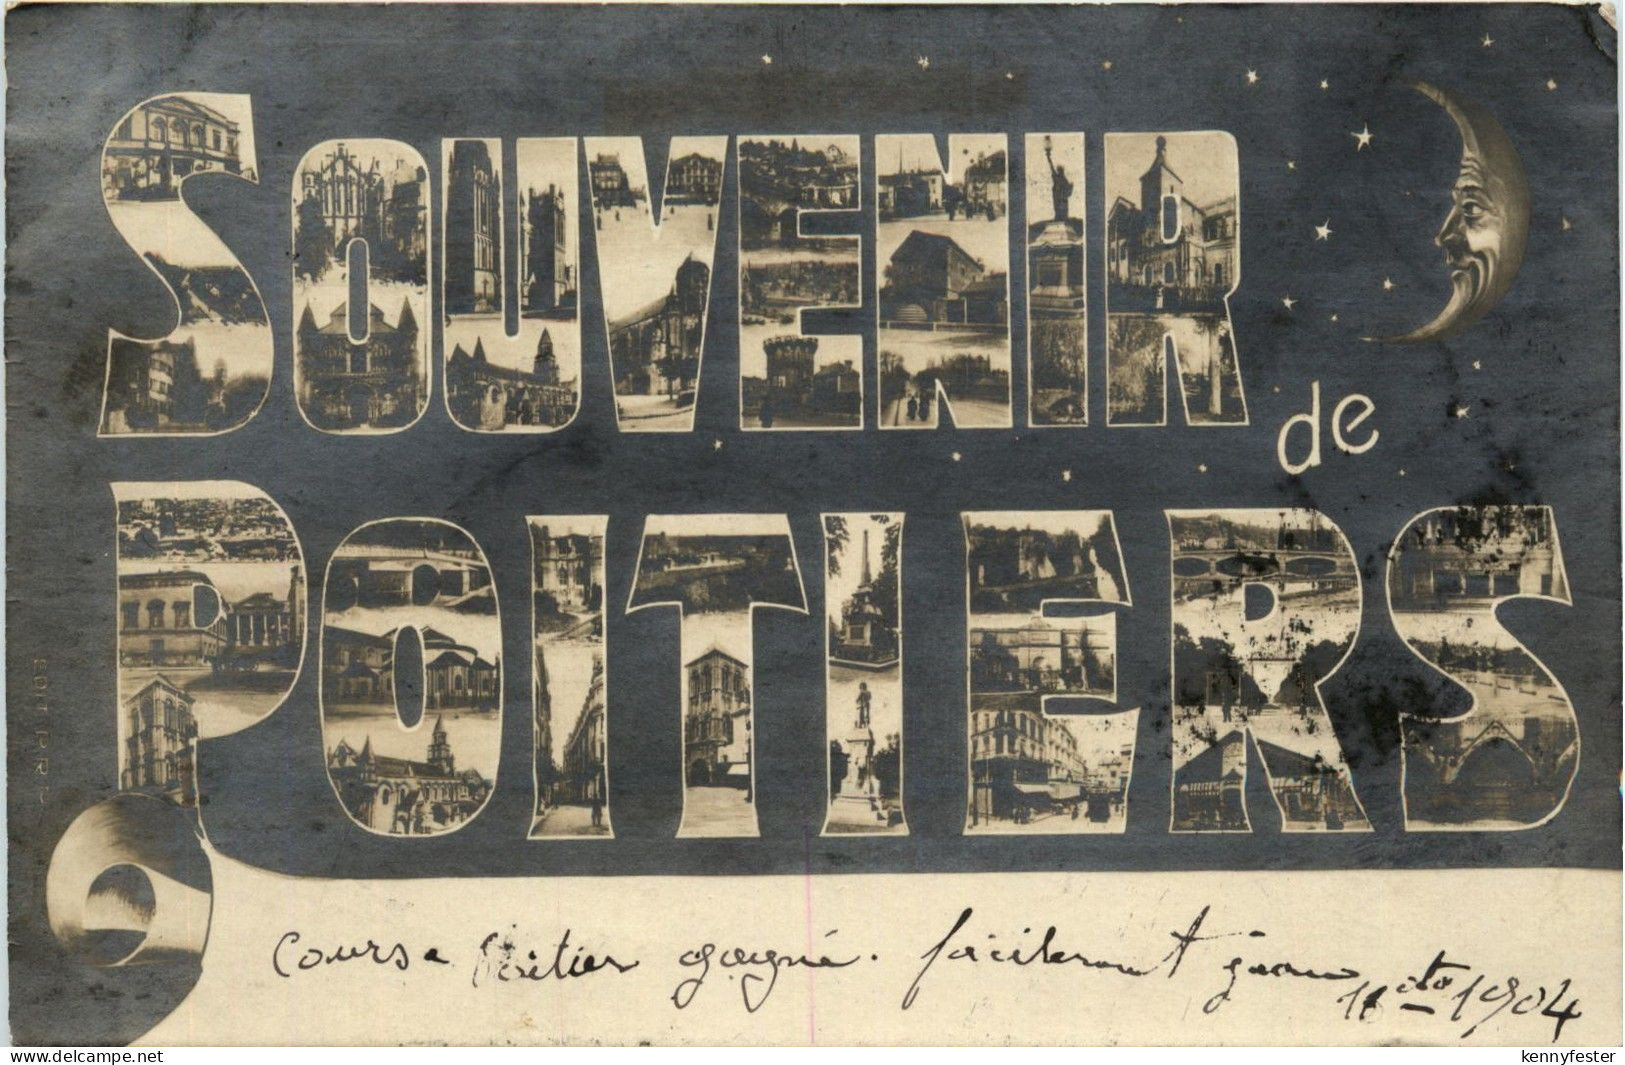 SOUVENIR
de
POITIERS
course Poitiers gagné. facilement
1904
www.delcampe.net
kennyfester